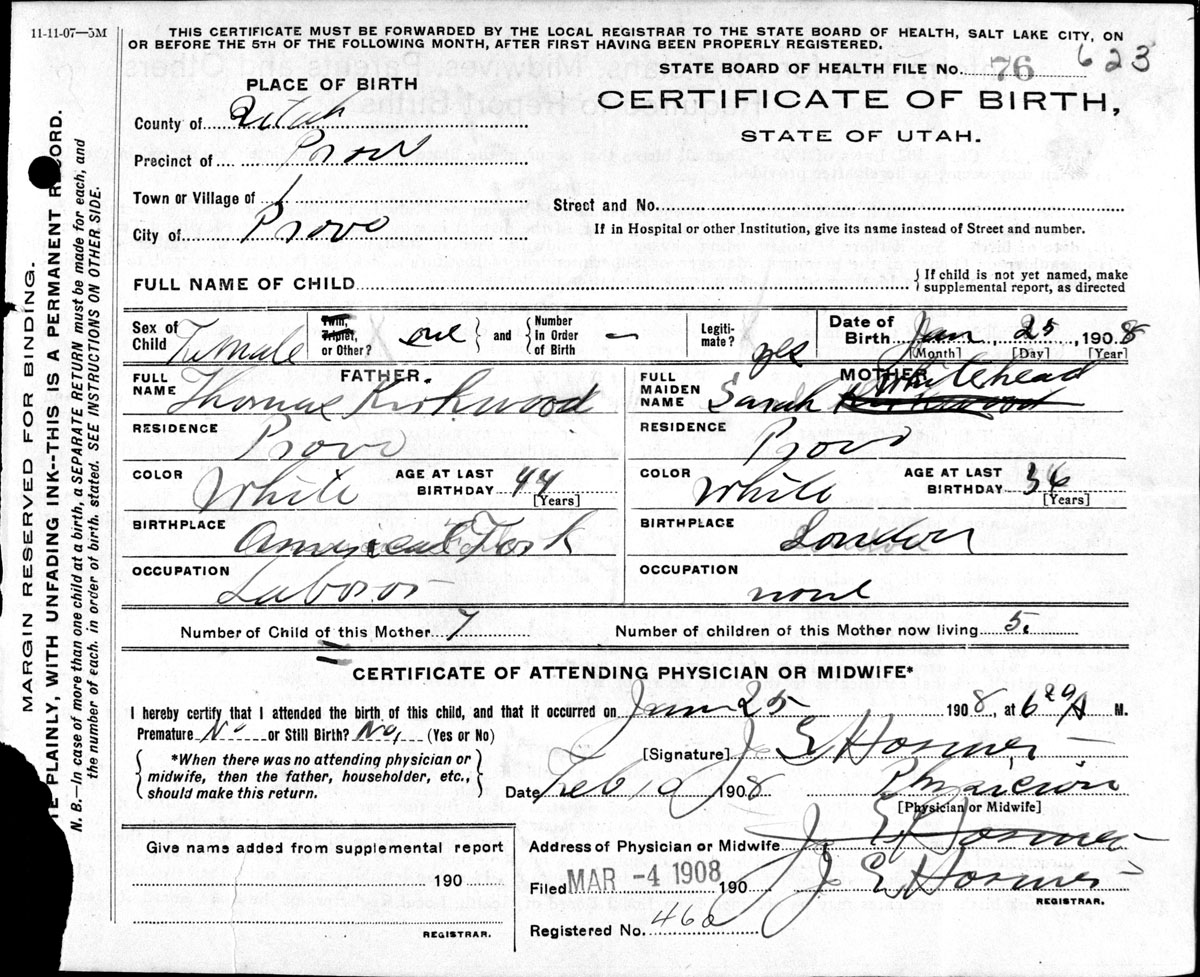 11-11-07—5M
THIS CERTIFICATE MUST BE FORWARDED BY THE LOCAL REGISTRAR TO THE STATE BOARD OF HEALTH, SALT LAKE CITY, ON
OR BEFORE THE 5TH OF THE FOLLOWING MONTH, AFTER FIRST HAVING BEEN PROPERLY REGISTERED.
STATE BOARD OF HEALTH FILE No. 76 623
PLACE OF BIRTH
CERTIFICATE OF BIRTH,
STATE OF UTAH.
County of Utah
Precinct of Provo
Town or Village of
Street and No.
City of Provo
If in Hospital or other Institution, give its name instead of Street and number.
FULL NAME OF CHILD
If child is not yet named, make
supplemental report, as directed
Sex of Child Female
Twin, Triplet, or Other? one and Number In Order of Birth —
Legitimate? yes
Date of Birth Jan 25, 1908
[Month] [Day] [Year]
FATHER.
FULL NAME Thomas Kirkwood
RESIDENCE Provo
COLOR White AGE AT LAST BIRTHDAY 44 [Years]
BIRTHPLACE American Fork
OCCUPATION Labor
MOTHER
FULL MAIDEN NAME Sarah Kirkwood Whitehead
RESIDENCE Provo
COLOR White AGE AT LAST BIRTHDAY 36 [Years]
BIRTHPLACE London
OCCUPATION none
Number of Child of this Mother 7 Number of children of this Mother now living 5.
CERTIFICATE OF ATTENDING PHYSICIAN OR MIDWIFE*
I hereby certify that I attended the birth of this child, and that it occurred on Jan 25 1908, at 6 20 A M.
Premature No or Still Birth? No, (Yes or No)
*When there was no attending physician or
midwife, then the father, householder, etc.,
should make this return.
[Signature] J E Hosmer
Date Feb 1908 Physician
[Physician or Midwife]
Give name added from supplemental report
190
REGISTRAR.
Address of Physician or Midwife J. E. Hosmer
Filed MAR -4 1908 190 J E Hosmer
REGISTRAR.
Registered No. 462
MARGIN RESERVED FOR BINDING.
PLAINLY, WITH UNFADING INK--THIS IS A PERMANENT RECORD.
N. B.—In case of more than one child at a birth, a SEPARATE RETURN must be made for each, and
the number of each, in order of birth, stated. SEE INSTRUCTIONS ON OTHER SIDE.